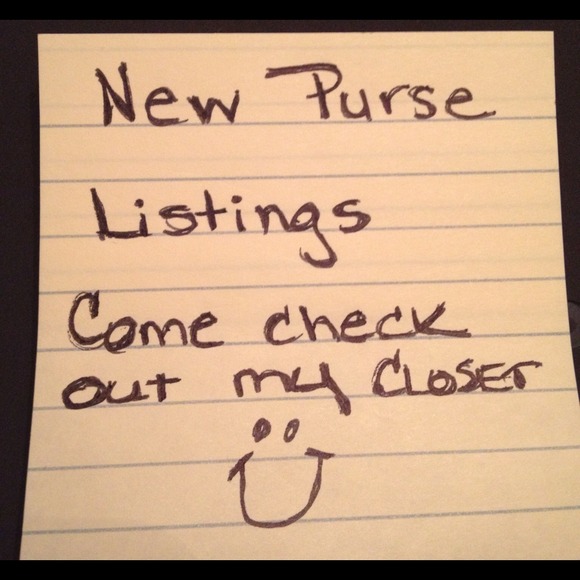 New Purse
Listings
Come check
out my CLOSET